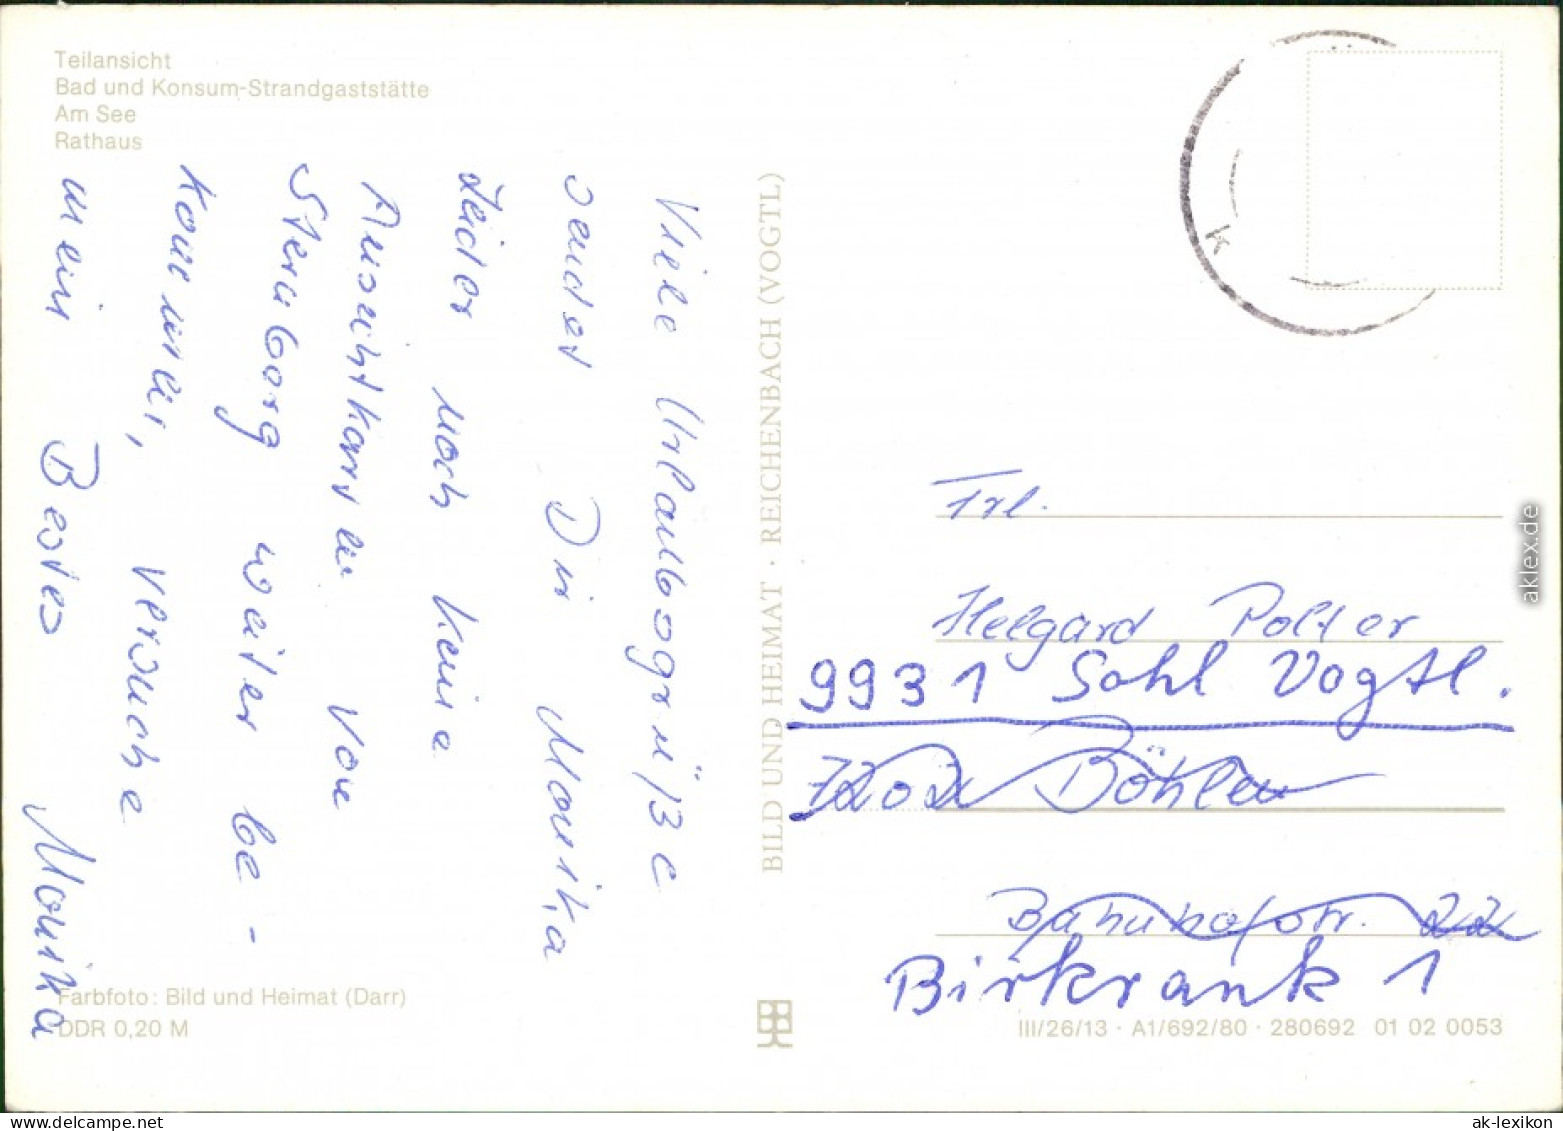 Teilansicht
Bad und Konsum-Strandgaststätte
Am See
Rathaus
Viele Urlaubsgrüße
sendet Dir Monika
Leider noch keine
Ansichtkarten von
Sternberg weiter be-
kommen, versuche
mein Bestes
Monika
Farbfoto: Bild und Heimat (Darr)
DDR 0,20 M
BILD UND HEIMAT · REICHENBACH (VOGTL)
K
Frl.
Helgard Polter
9931 Sohl Vogtl.
7202 Böhlen
Bahnhofstr. 22
Birkrank 1
III/26/13 · A1/692/80 · 280692 01 02 0053
aklex.de
www.delcampe.net
ak-lexikon